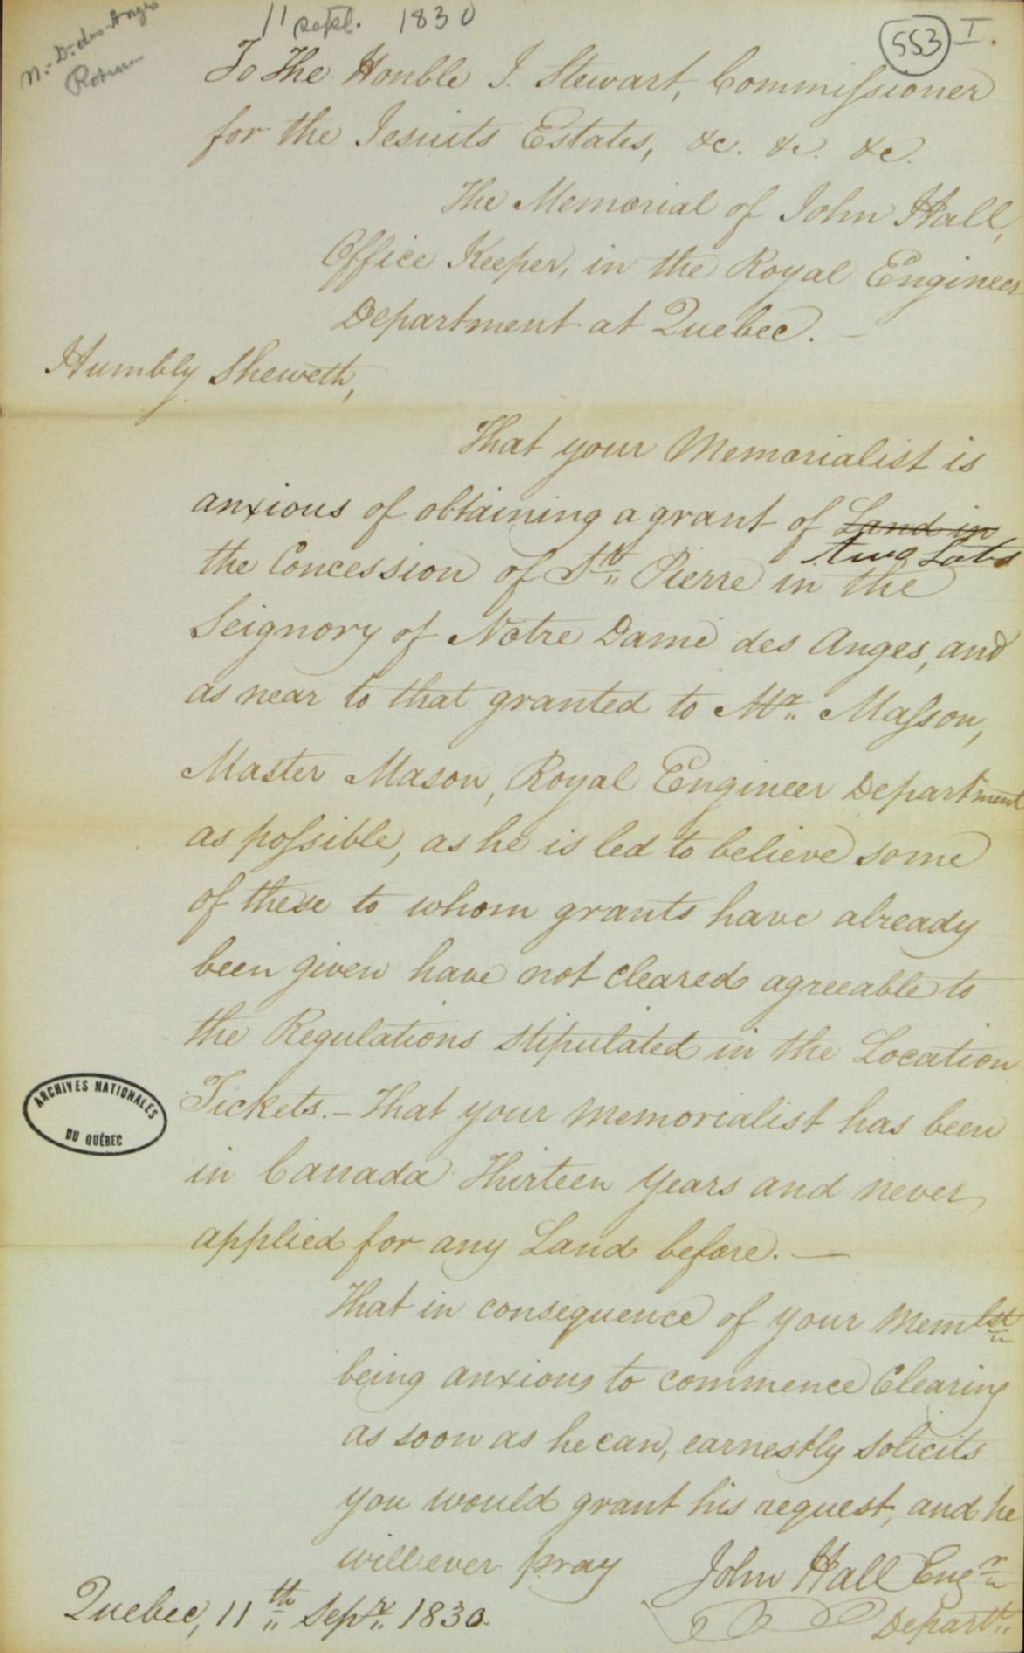 11 Sept. 1830
553 I.
N.-D.-des-Anges
To The Honble J. Stewart, Commissioner
for the Jesuits Estates, &c. &c. &c.
The Memorial of John Hall,
Office Keeper, in the Royal Engineer
Department at Quebec. —
Humbly Sheweth,
That your Memorialist is
anxious of obtaining a grant of Land in
two Lots
the Concession of St. Pierre in the
Seignory of Notre Dame des Anges, and
as near to that granted to Mr. Masson,
Master Mason, Royal Engineer Department
as possible, as he is led to believe some
of these to whom grants have already
been given have not cleared agreeable to
the Regulations stipulated in the Location
Tickets. – That your memorialist has been
in Canada Thirteen Years and never
applied for any Land before. —
That in consequence of your Memlst
being anxious to commence Clearing
as soon as he can, earnestly solicits
you would grant his request, and he
will ever pray
John Hall Engr
Departt.
Quebec, 11th Sepr. 1830.
ARCHIVES NATIONALES
DU QUÉBEC